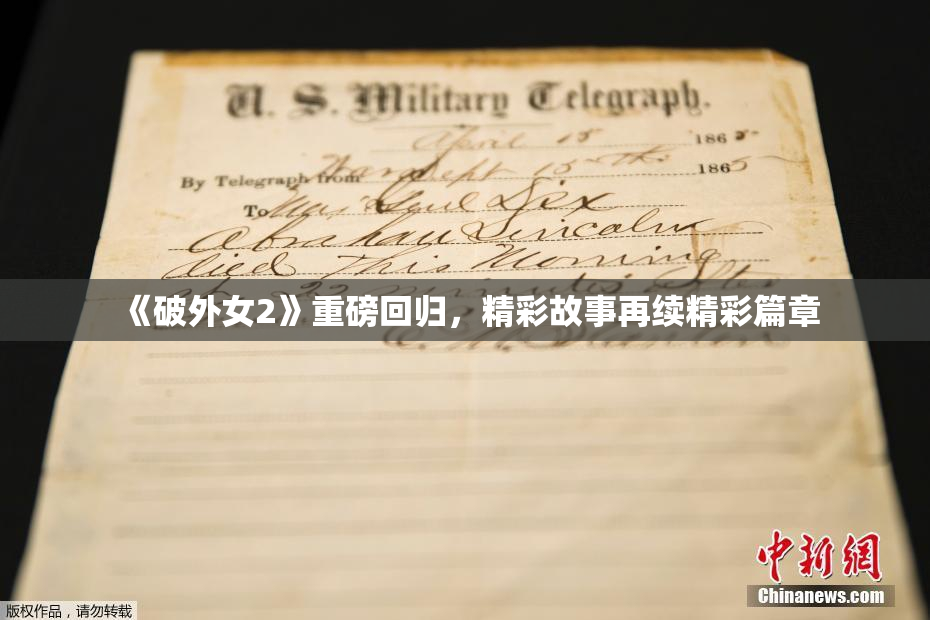 U. S. Military Telegraph.
April 15 1865
By Telegraph from War Dept 15th 1865
To Maj Genl Dix
Abraham Lincoln
died This Morning
at 22 minutes after
《破外女2》重磅回归，精彩故事再续精彩篇章
E. M. Stanton
中新网
Chinanews.com
版权作品，请勿转载